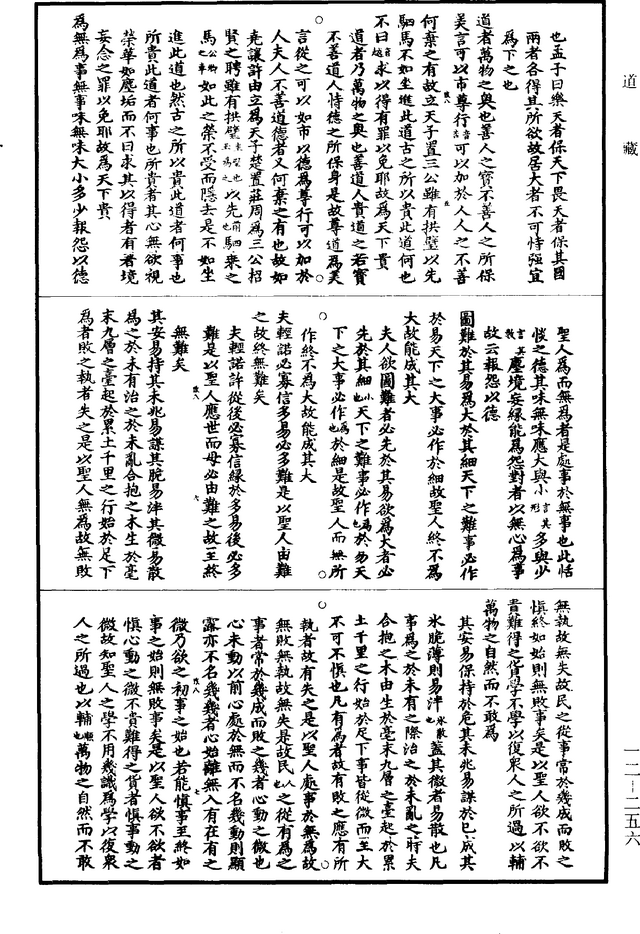 道藏
也孟子曰樂天者保天下畏天者保其國
兩者各得其所欲故居大者不可恃强宜
為下之也
道者萬物之奥也善人之寳不善人之所保
美言可以市尊行可以加於人人之不善
何棄之有故立天子置三公雖有拱璧以先
駟馬不如坐進此道古之所以貴此道何也
不曰求以得有罪以免耶故為天下貴
道者乃萬物之奥也善道人貴道之若寳
不善道人恃德之所保身是故尊道為美
言從之可以如市以德為尊行可以加於
人夫人不善道德者又何棄之有也故如
堯讓許由立為天子楚置莊周為三公招
賢之聘雖有拱璧以先駟乘之
馬如此之榮不受而隱去是不如坐
進此道也然古之所以貴此道者何事也
所貴此道者何事也所貴者其心無欲視
榮華如塵垢而不曰求其以得者有者境
妄念之罪以免耶故為天下貴
為無為事無事味無味大小多少報怨以德
聖人為而無為者是處事於無事也此恬
惔之德其味無味應大與小多與少
塵境妄緣能為怨對者以無心為事
故云報怨以德
圖難於其易為大於其細天下之難事必作
於易天下之大事必作於細故聖人終不為
大故能成其大
夫人欲圖難者必先於其易欲為大者必
先於其細也小天下之難事必作也為於易天
下之大事必作也為於細是故聖人而無所
作終不為大故能成其大
夫輕諾必寡信多易必多難是以聖人由難
之故終無難矣
夫輕諾許從後必寡信緣於多易後必多
難是以聖人應世而毋必由難之故一至終
無難矣
其安易持其未兆易謀其脆易泮其微易散
為之於未有治之於未亂合抱之木生於毫
末九層之臺起於累土千里之行始於足下
為者敗之執者失之是以聖人無為故無敗
無執故無失故民之從事常於幾成而敗之
慎終如始則無敗事矣是以聖人欲不欲不
貴難得之貨學不學以復衆人之所過以輔
萬物之自然而不敢為
其安易保持於危其未兆易謀於已成其
氷脆薄則易泮蓋其微者易散也凡
事為之於未有之際治之於未亂之時夫
合抱之木由生於毫末九層之臺起於累
土千里之行始於足下事皆從微而至大
不可不慎也凡有為者故有敗之應有所
執者故有失之是以聖人處事於無為故
無敗無執故無失是故民之從有為之
事者常於幾成而敗之幾者心動之微也
心未動以前心處於無而不名幾動則顯
露亦不名幾幾者心始離無入有在有之
微乃欲之初事之始也若能慎事至終如
事之始則無敗事矣是以聖人欲不欲者
慎心動之微不貴難得之貨者慎事動之
微故知聖人之學不用幾識為學以復衆
人之所過也以輔萬物之自然而不敢
一二－二五六